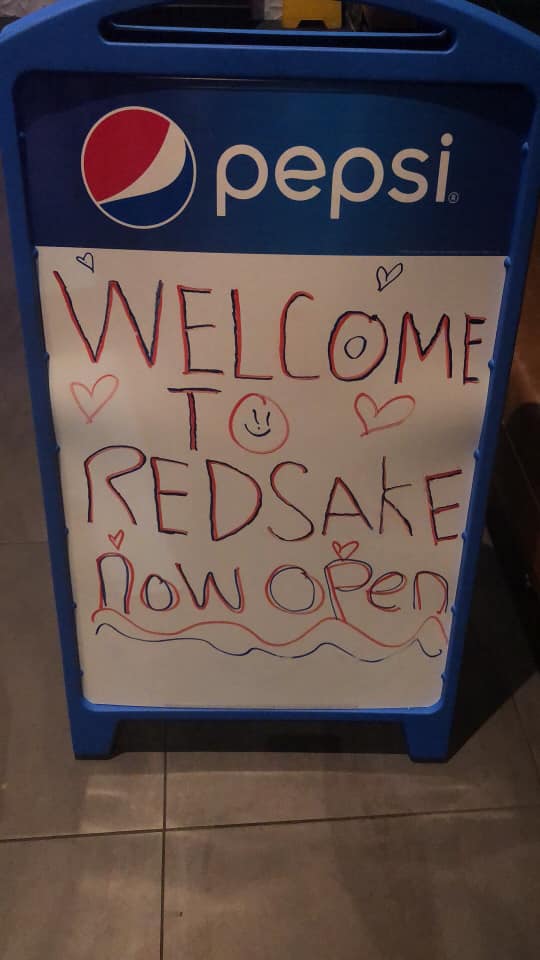 pepsi®
WELCOME
TO
REDSAKE
now open